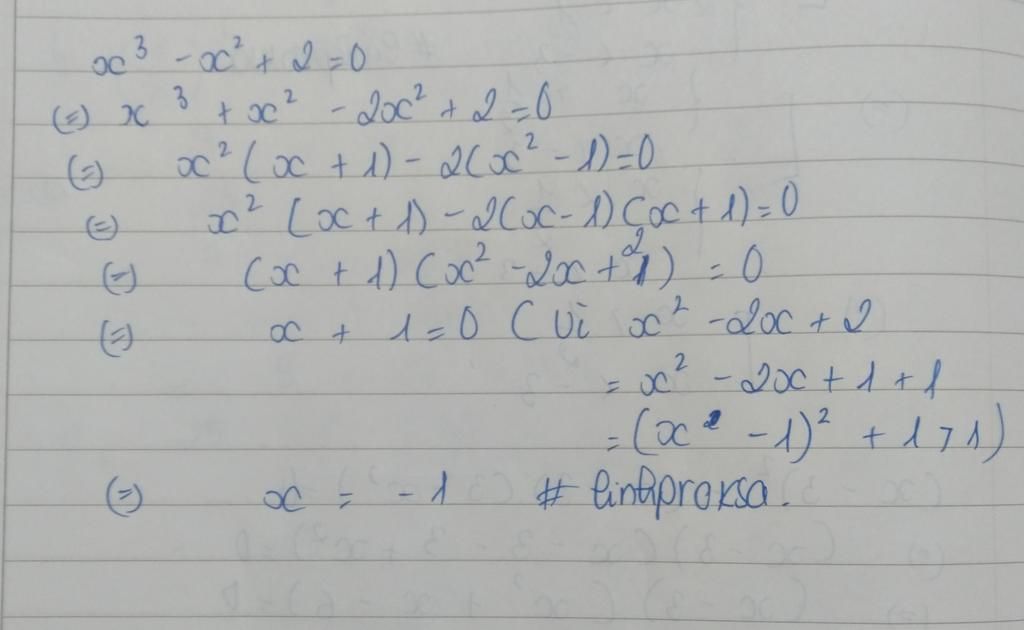 x³ - x² + 2 = 0
(=) x³ + x² - 2x² + 2 = 0
(=) x² (x + 1) - 2(x² - 1) = 0
(=) x² (x + 1) - 2(x - 1)(x + 1) = 0
(=) (x + 1)(x² - 2x + 2) = 0
(=) x + 1 = 0 (Vi x² - 2x + 2
= x² - 2x + 1 + 1
= (x - 1)² + 1 > 1)
(=) x = -1 #